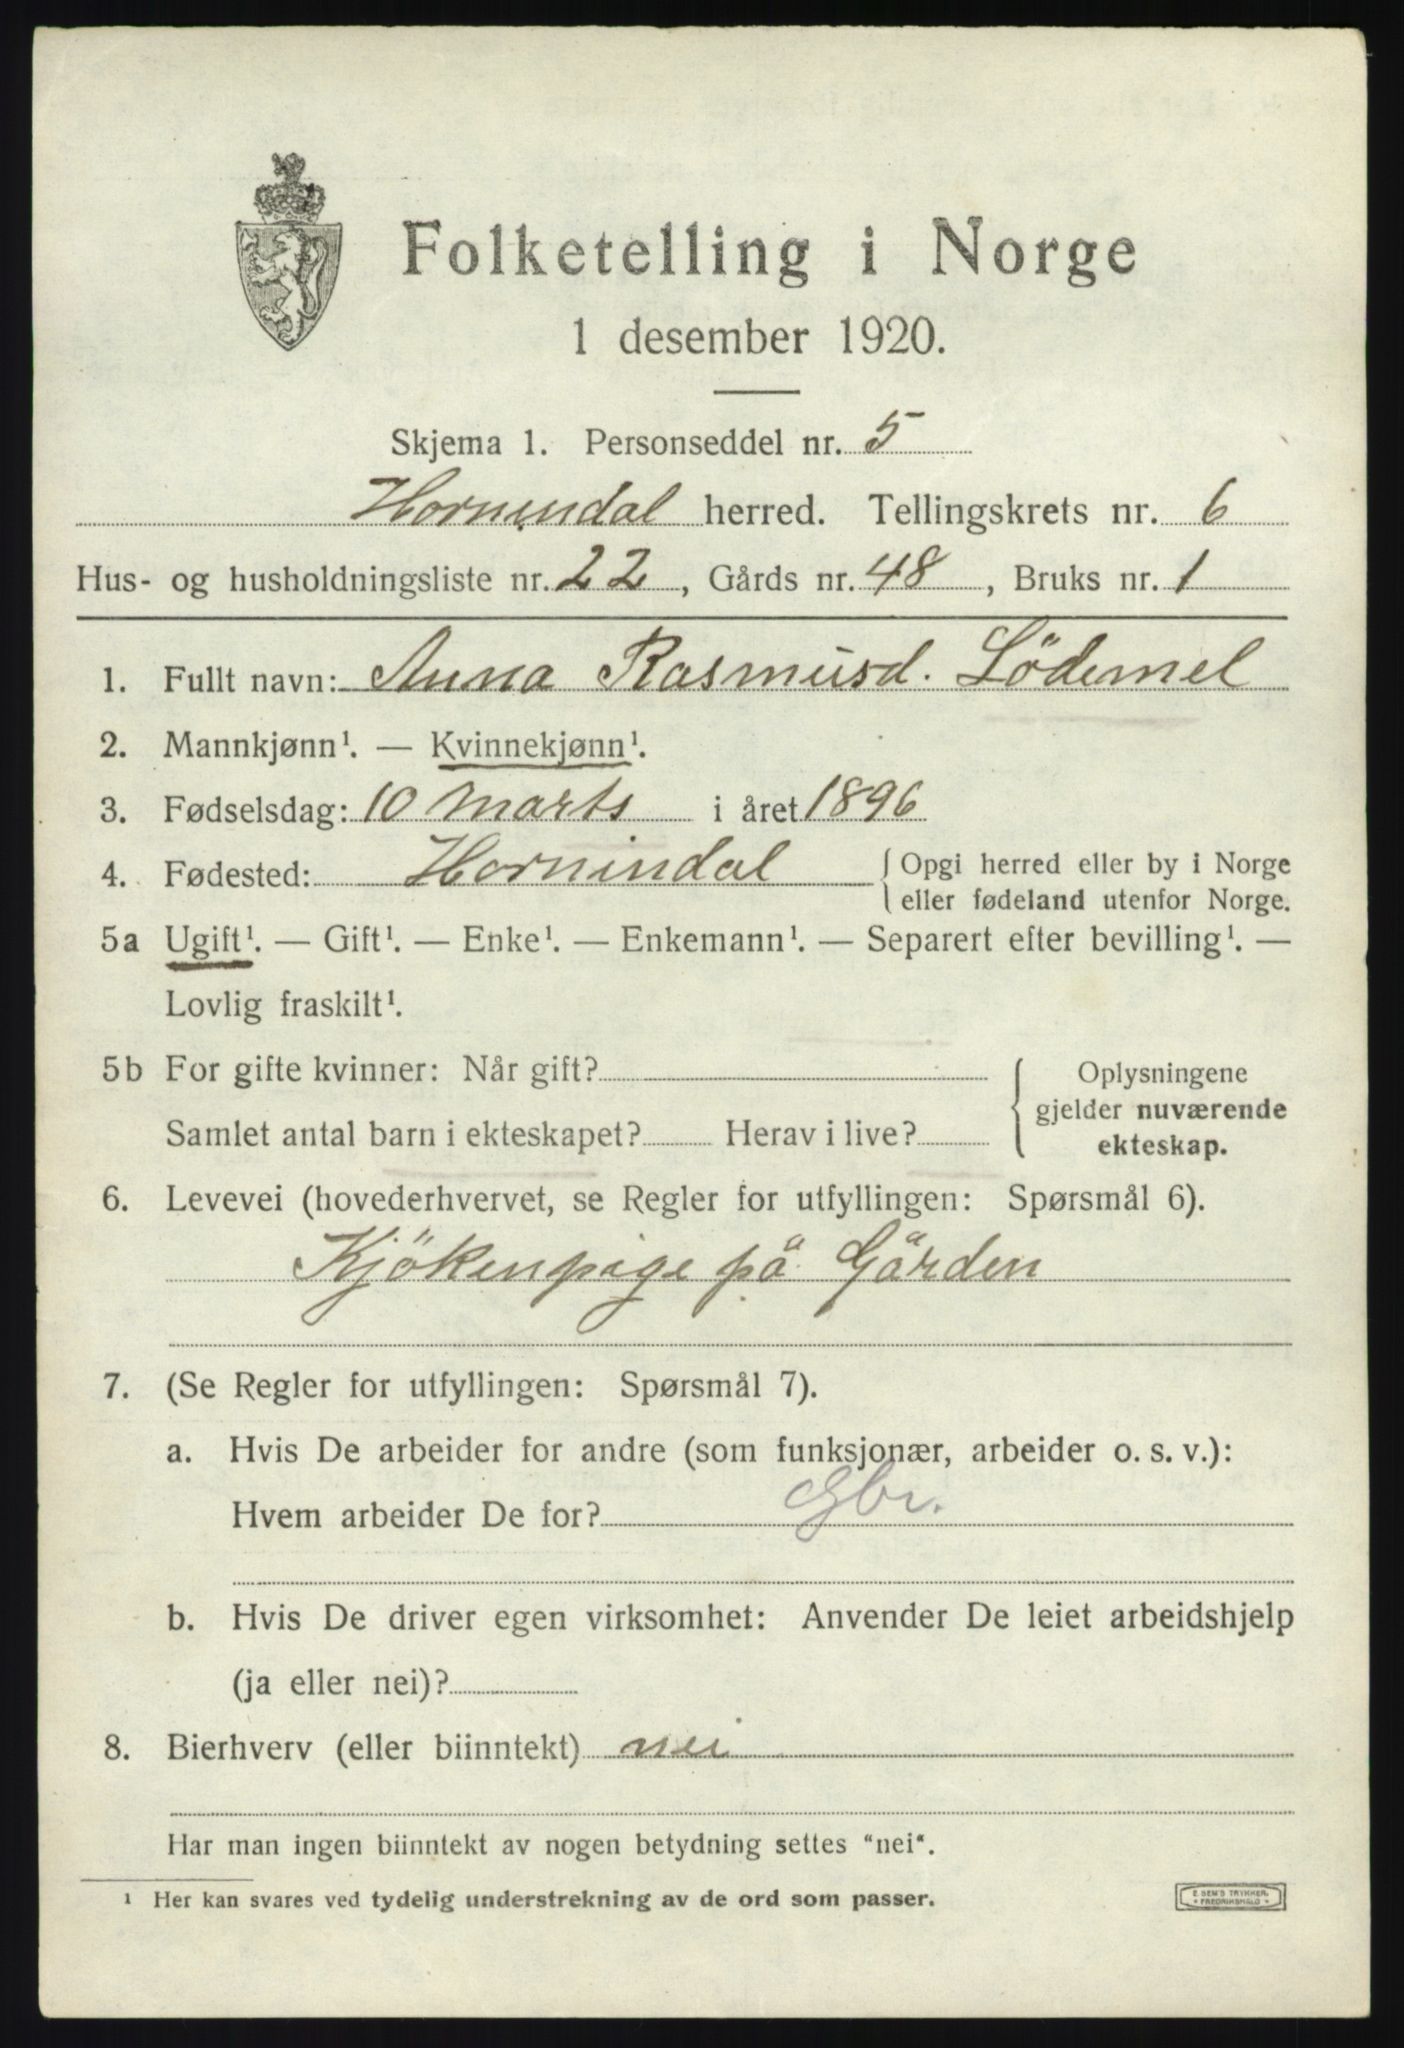 Folketelling i Norge
1 desember 1920.
Skjema 1. Personseddel nr. 5
Hornindal herred. Tellingskrets nr. 6
Hus- og husholdningsliste nr. 22, Gårds nr. 48, Bruks nr. 1
1. Fullt navn: Anna Rasmusd. Lödemel
2. Mannkjønn¹. — Kvinnekjønn¹.
3. Fødselsdag: 10 Marts i året 1896
4. Fødested: Hornindal { Opgi herred eller by i Norge
eller fødeland utenfor Norge.
5a Ugift¹. — Gift¹. — Enke¹. — Enkemann¹. — Separert efter bevilling¹. —
Lovlig fraskilt¹.
5b For gifte kvinner: Når gift?
Samlet antal barn i ekteskapet? Herav i live?
Oplysningene
gjelder nuværende
ekteskap.
6. Levevei (hovederhvervet, se Regler for utfyllingen: Spørsmål 6).
Kjökenpige på Gården
7. (Se Regler for utfyllingen: Spørsmål 7).
a. Hvis De arbeider for andre (som funksjonær, arbeider o. s. v.):
Hvem arbeider De for? Gbr.
b. Hvis De driver egen virksomhet: Anvender De leiet arbeidshjelp
(ja eller nei)?
8. Bierhverv (eller biinntekt) nei
Har man ingen biinntekt av nogen betydning settes "nei".
¹ Her kan svares ved tydelig understrekning av de ord som passer.
E. SEM'S TRYKKERI,
FREDRIKSHALD